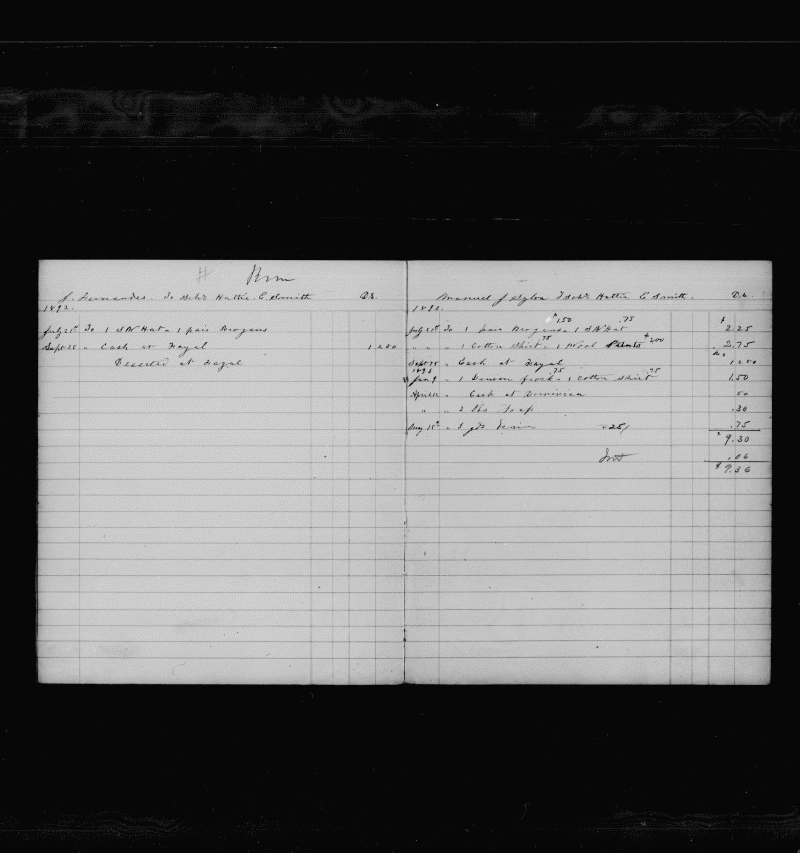 J. Fernandes. To Schr Hattie E. Smith Dr.
1892.
July 21st To 1 S W Hat " 1 pair Brogans
Sept 25 " Cash at Fayal 1 200
Deserted at Fayal
Manuel J Sylva To Schr Hattie E Smith. Dr.
1892.
$1.50 .75 $
July 21st To 1 pair Brogans " 1 S W Hat 2.25
" " " 1 Cotton Shirt .75 " 1 Wool Pants $2.00 2.75
Sept 25 " Cash at Fayal 1 200
1893
Jan 9 " 1 Denim frock .75 " 1 Cotton Shirt .75 1.50
April " Cash at Dominica 50
" " 3 lbs Soap .30
Aug 15th " 3 yds Denim .25 .75
$ 9.30
Int .06
$ 9.36